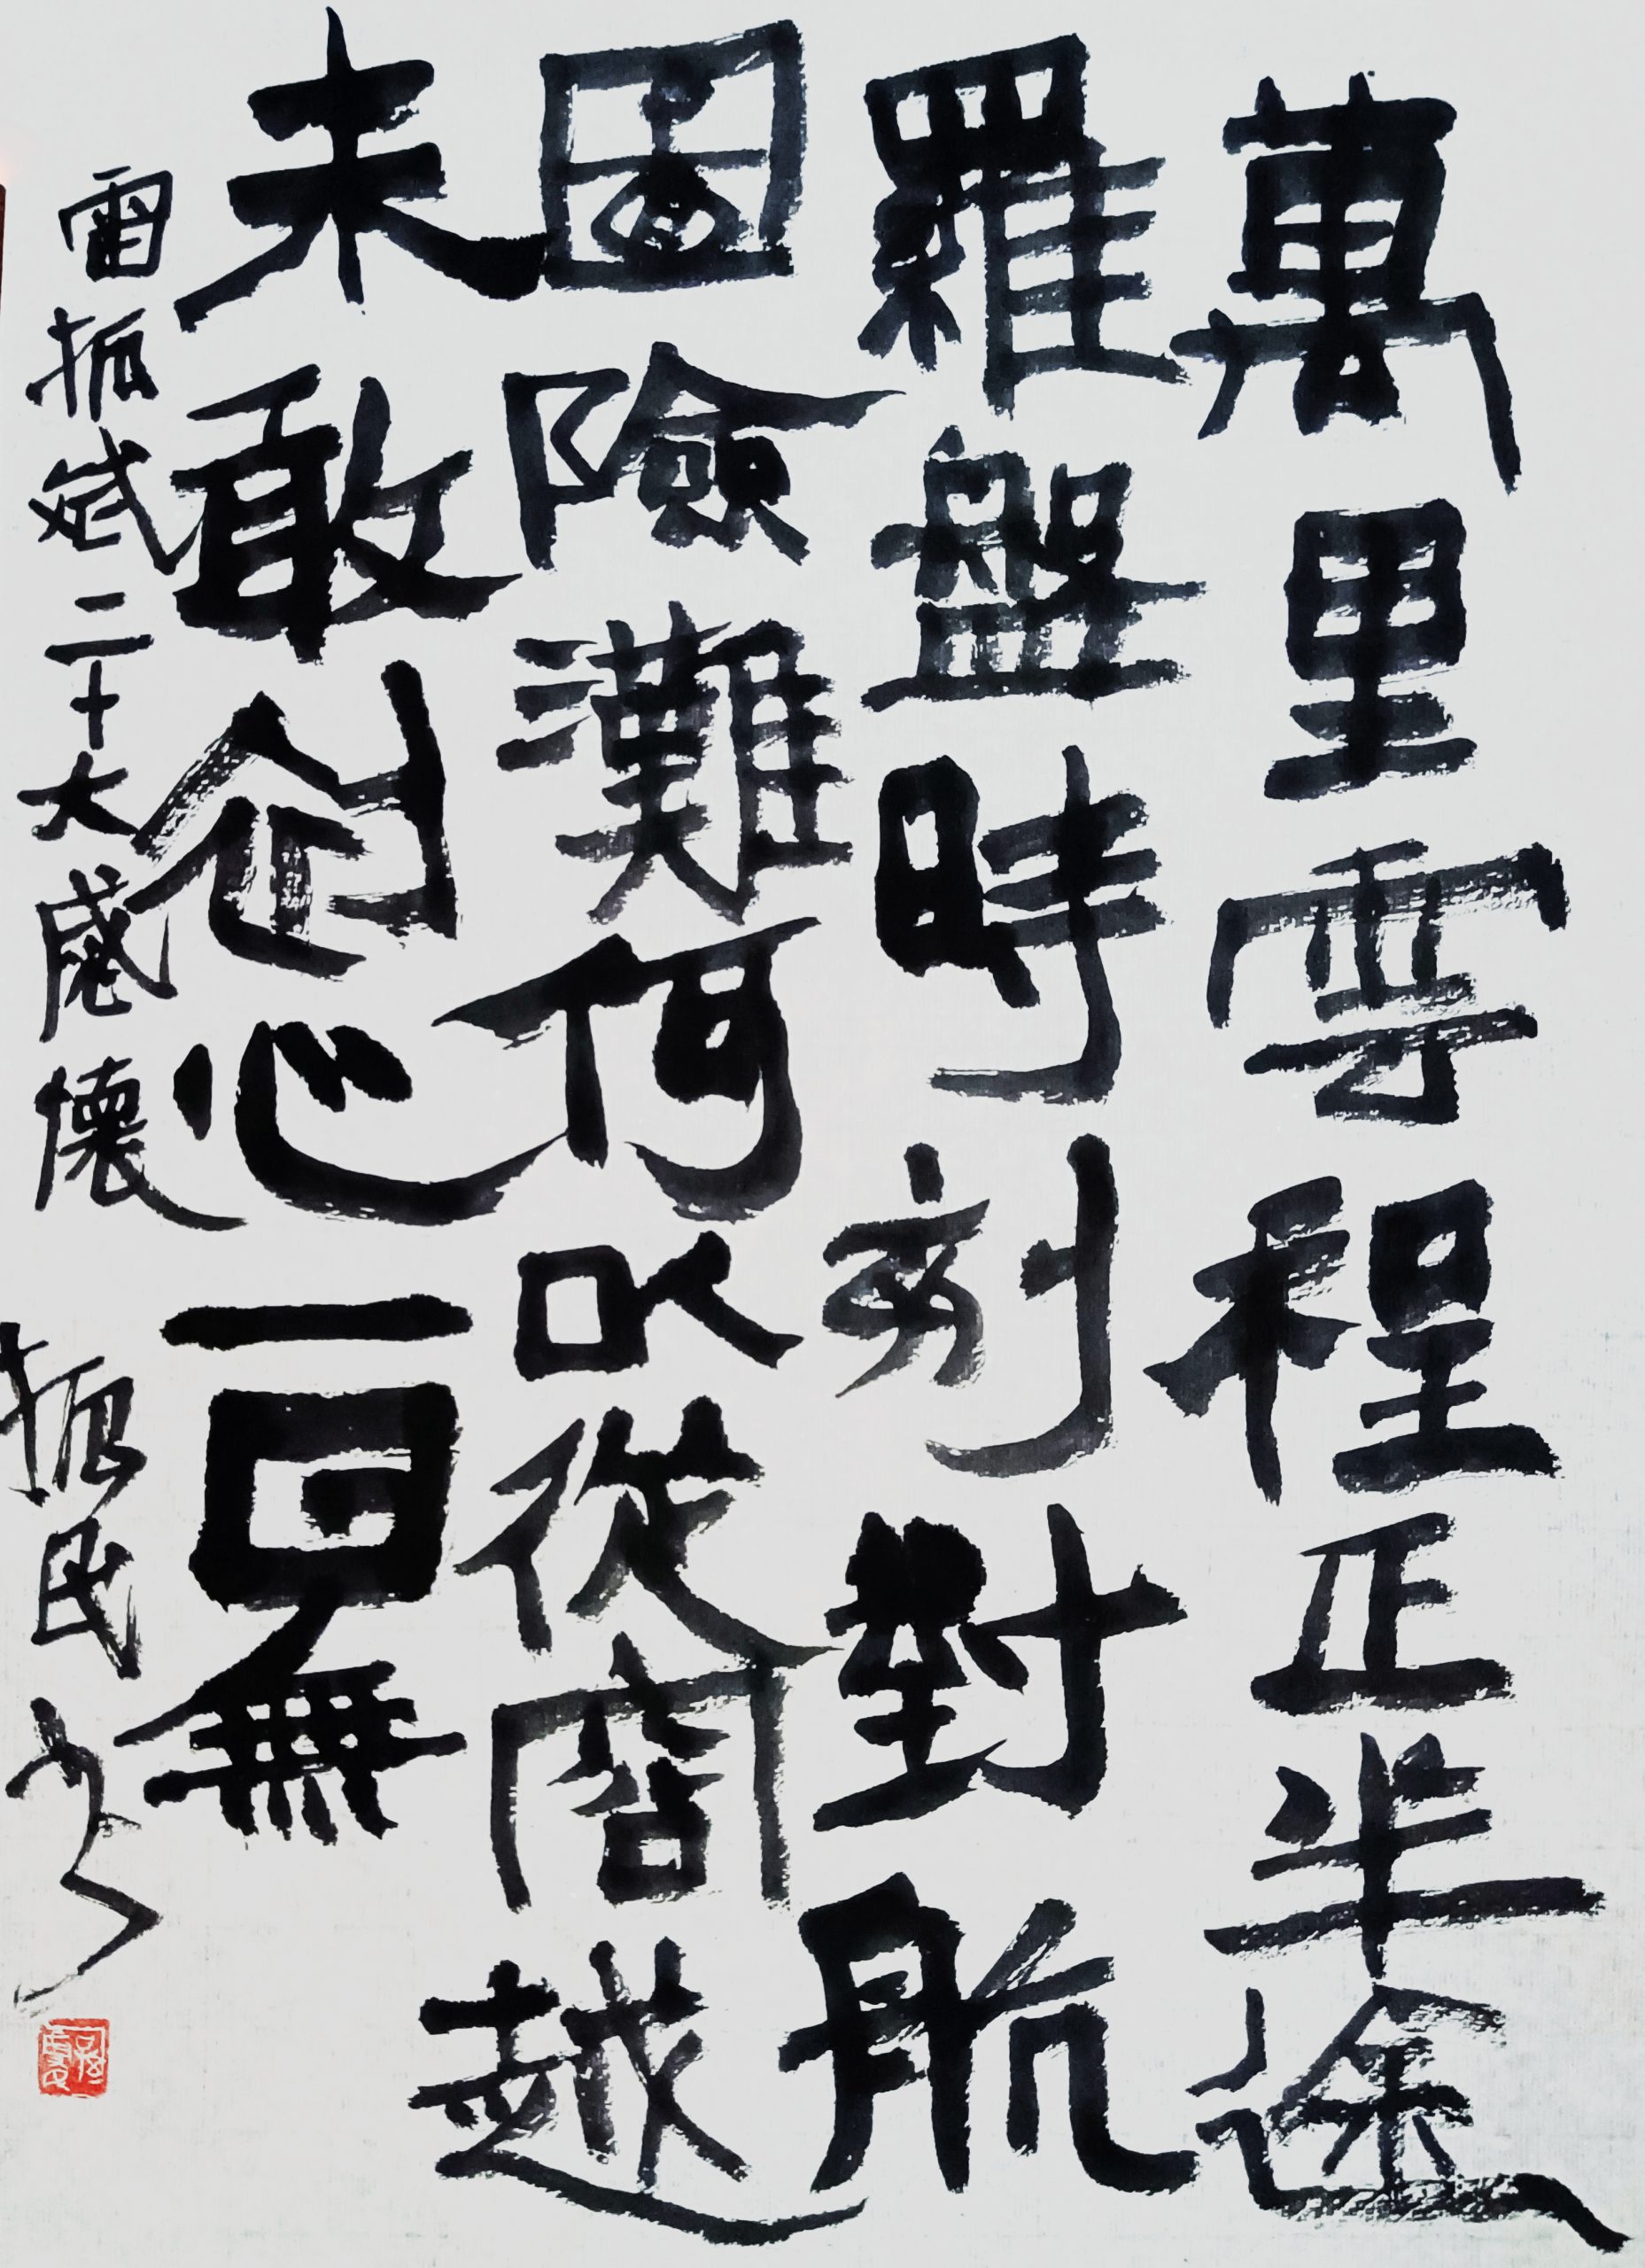 萬里雲程正半途
羅盤時刻對航
圖險灘何以從容越
未敢心一回無
雷振斌二十大感懷 振民书